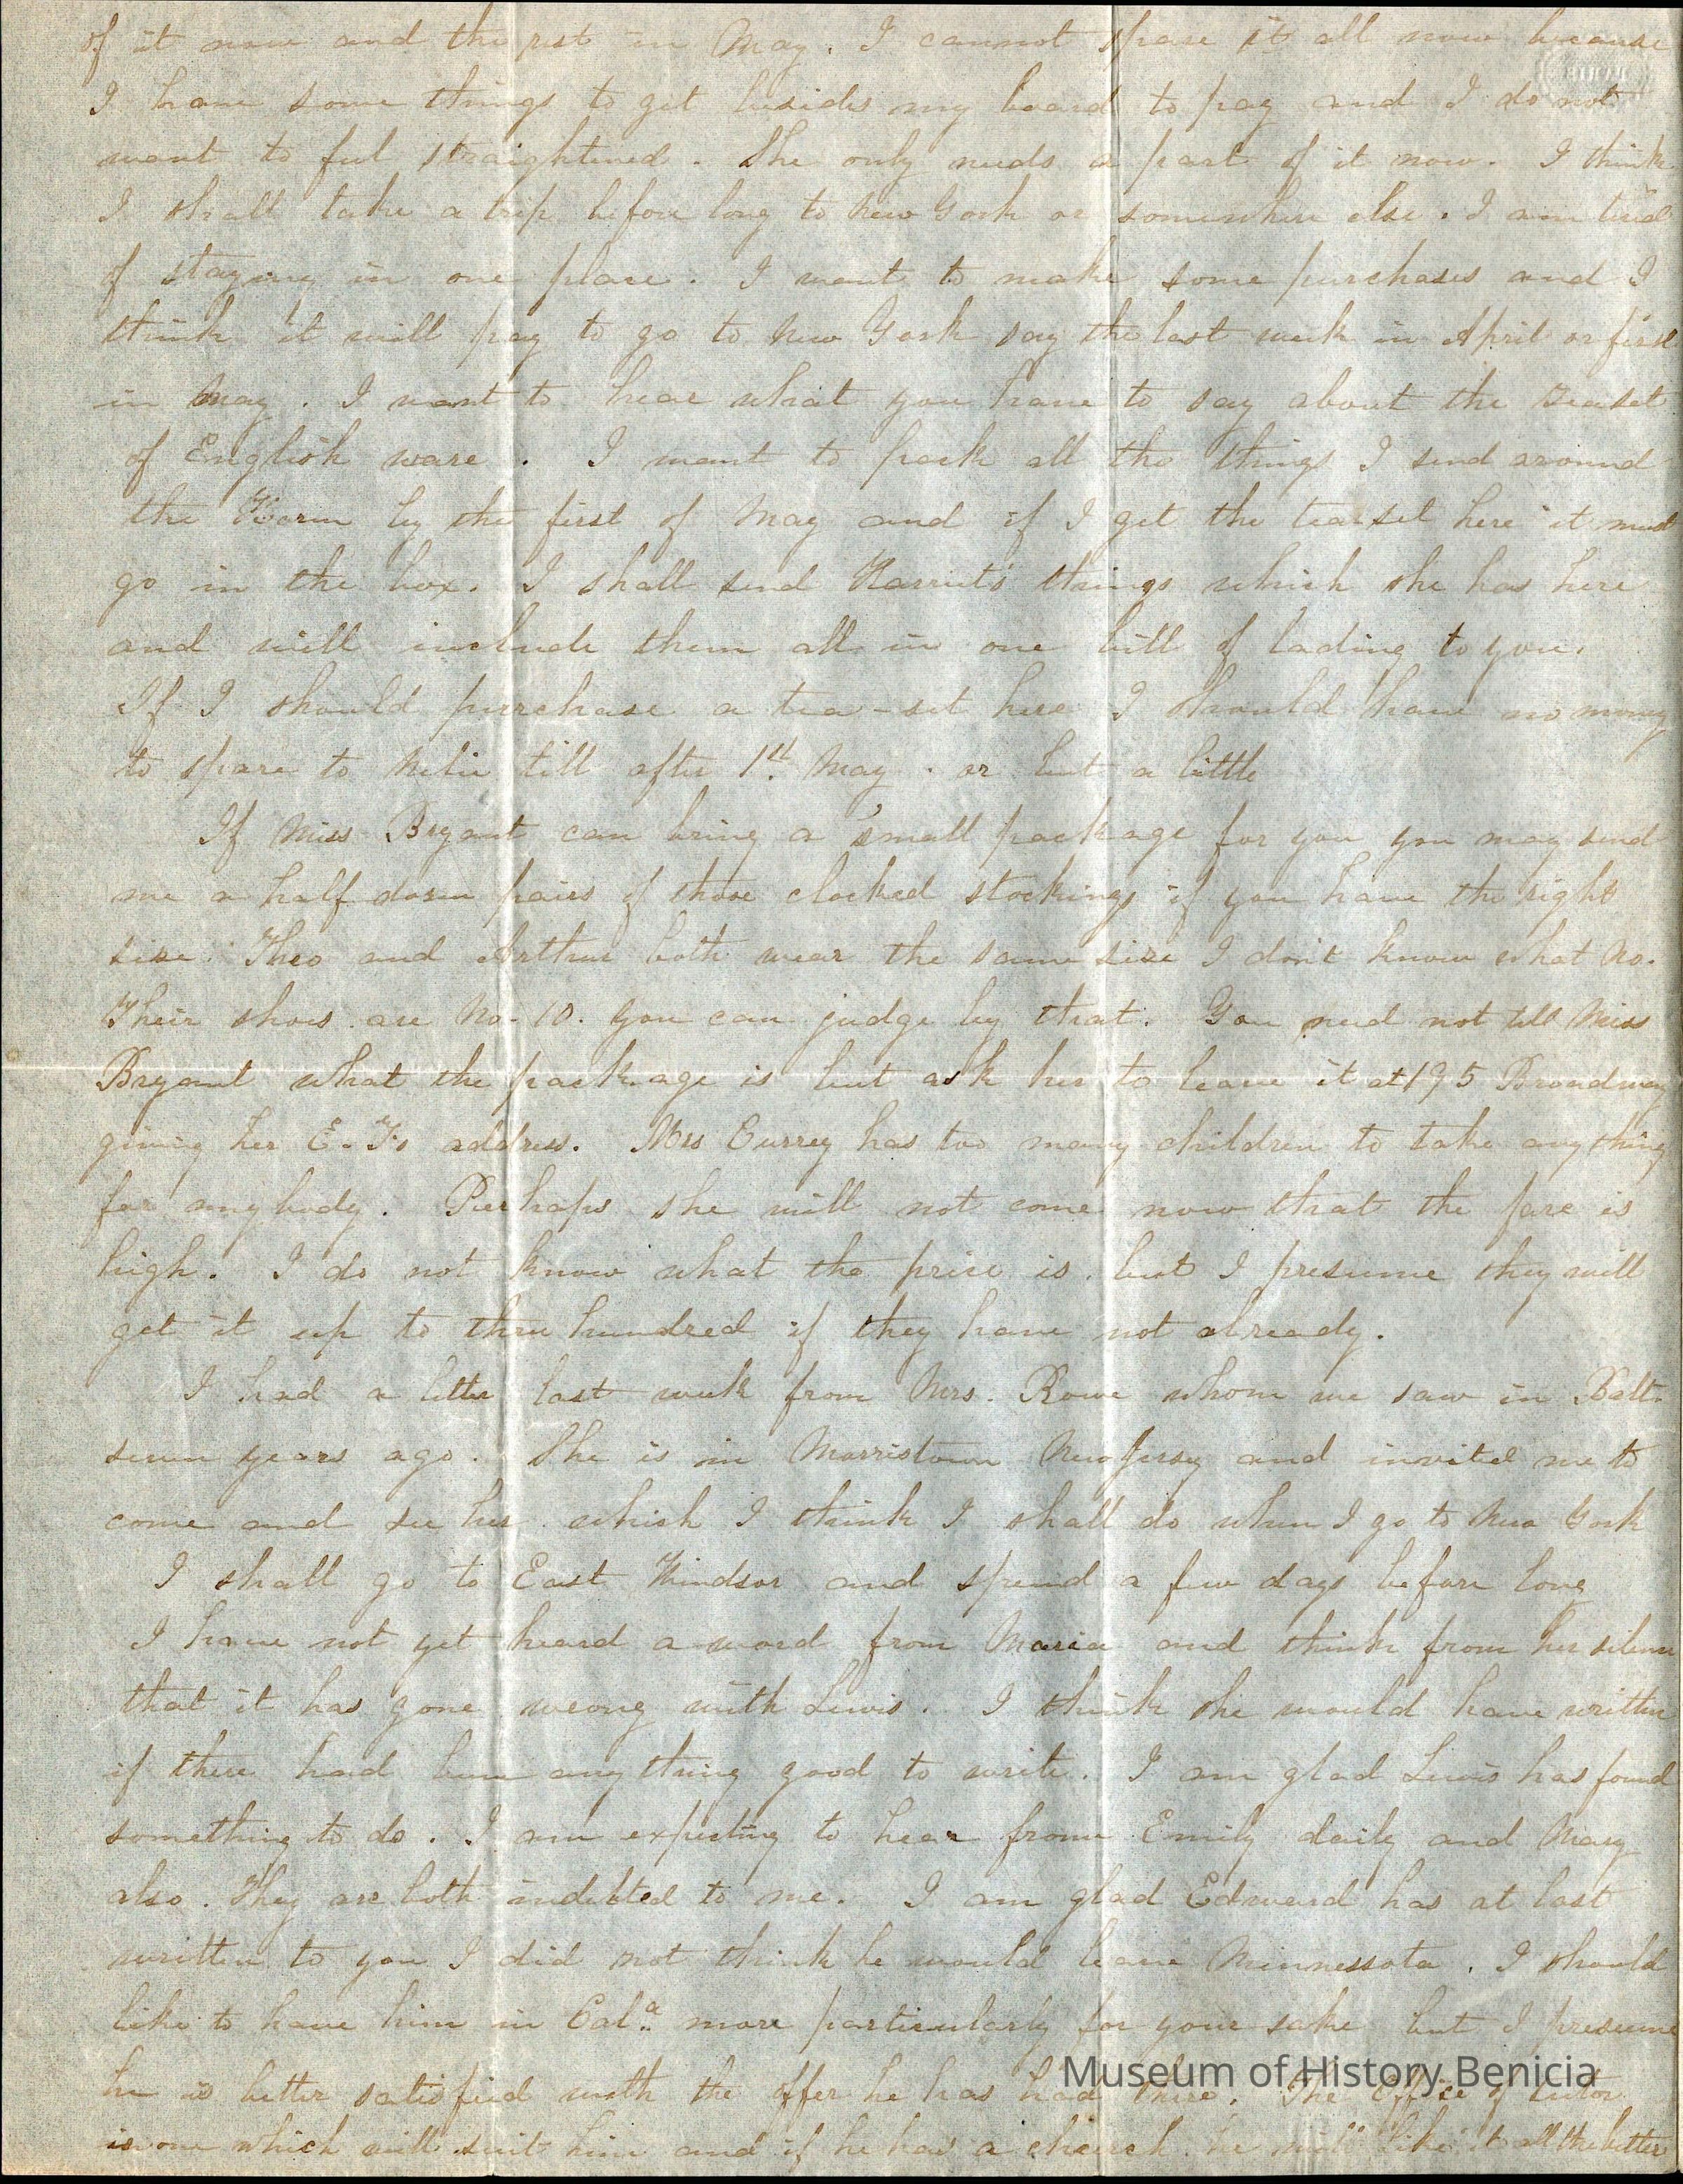 of it now and the rest in May. I cannot spare it all now because
I have some things to get besides my board to pay and I do not
want to feel straightened. She only needs a part of it now. I think
I shall take a trip before long to New York or somewhere else. I am tired
of staying in one place. I want to make some purchases and I
think it will pay to go to New York say the last week in April or first
in May. I want to hear what you have to say about the teaset
of English ware. I want to pack all the things I send around
the Horn by the first of May and if I get the tea-set here it must
go in the box. I shall send Harriet's things which she has here
and will include them all in one bill of lading to you.
If I should purchase a tea-set here I should have no money
to spare to Nelie till after 1st. May. or but a little
If Miss Bryant can bring a small package for you you may send
me a half dozen pairs of those clocked stockings if you have the right
size. Theo and Arthur both wear the same size I don't know what No.
Their shoes are No. 10. You can judge by that. You need not tell Miss
Bryant what the package is but ask her to leave it at 195 Broadway
giving her E. F's address. Mrs Currey has too many children to take anything
for anybody. Perhaps she will not come now that the fare is
high. I do not know what the price is. but I presume they will
get it up to three hundred if they have not already.
I had a letter last week from Mrs. Rowe whom we saw in Balt.
seven years ago. She is in Morristown New Jersey and invited me to
come and see her which I think I shall do when I go to New York
I shall go to East Windsor and spend a few days before long
I have not yet heard a word from Maria and think from her silence
that it has gone wrong with Lewis. I think she would have written
if there had been anything good to write. I am glad Lewis has found
something to do. I am expecting to hear from Emily daily and Mary
also. They are both indebted to me. I am glad Edward has at last
written to you I did not think he would leave Minnessota. I should
like to have him in Cal.a more particularly for your sake but I presume
he is better satisfied with the offer he has had there. The office of tutor
is one which will suit him and if he has a church he will like it all the better
Museum of History Benicia